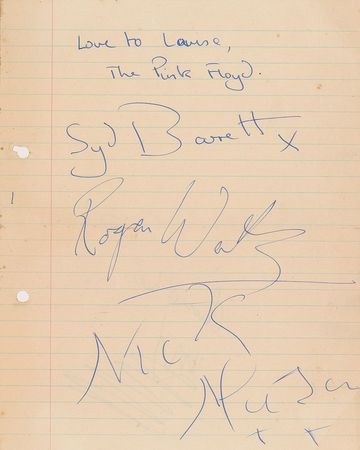 Love to Louise,
The Pink Floyd.
Syd Barrett x
Roger Waters
Nick
Mason
x x